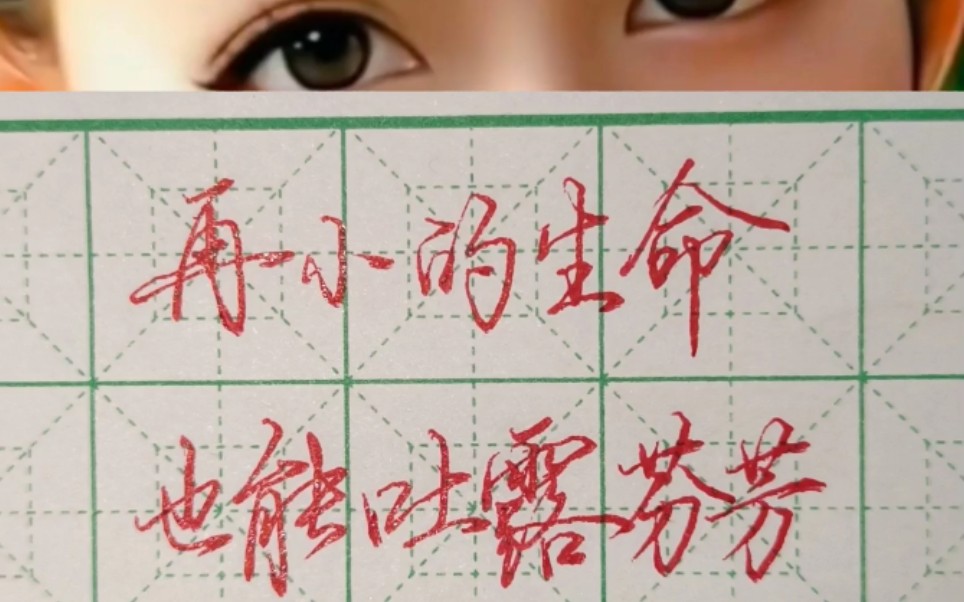 再小的生命
也能吐露芬芳